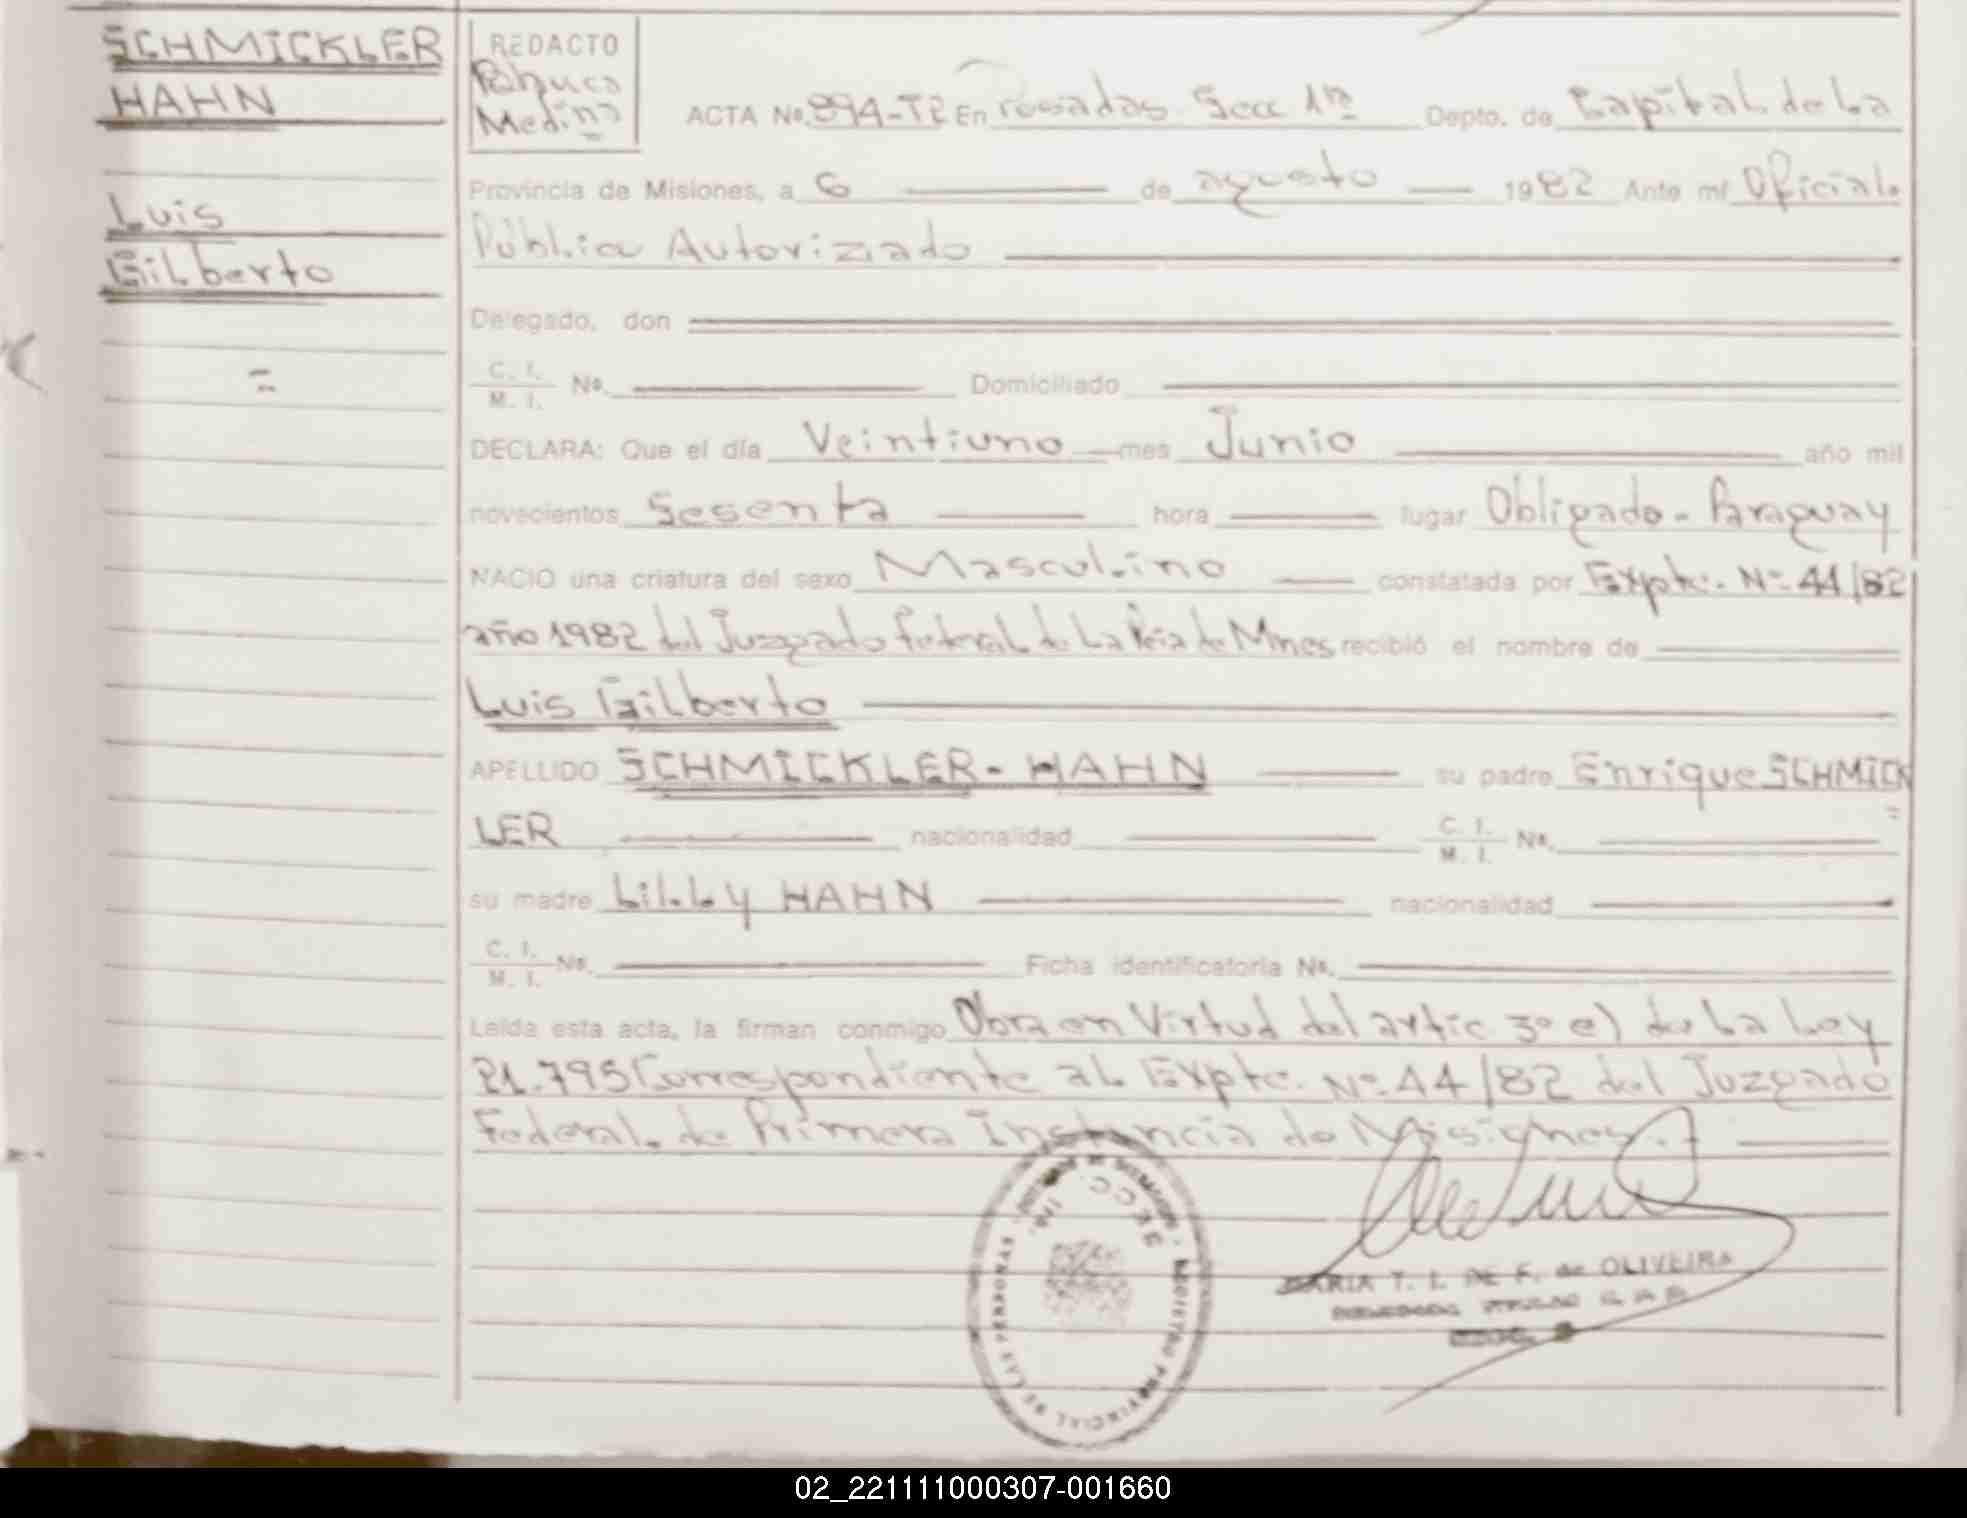 SCHMICKLER
HAHN
Luis
Gilberto
=
REDACTO
Medina
ACTA No. 894-T2 En Posadas Secc 1ra Depto. de Capital de La
Provincia de Misiones, a 6 de agosto 1982 Ante mi Oficial.
Público Autorizado
Delegado, don
C. I.
M. I. No. Domiciliado
DECLARA: Que el día Veintiuno mes Junio año mil
novecientos Sesenta hora lugar Obligado - Paraguay
NACIO una criatura del sexo Masculino constatada por Expte. Nº 44/82
año 1982 del Juzgado Federal de La Pcia de Mnes recibió el nombre de
Luis Gilberto
APELLIDO SCHMICKLER - HAHN su padre Enrique SCHMICK
=
LER nacionalidad C. I.
M. I. No.
su madre Lilly HAHN nacionalidad
C. I.
M. I. No. Ficha identificatoria No.
Leída esta acta, la firman conmigo Obra en Virtud del artic 3º e) de La Ley
21.795 Correspondiente al Expte. Nº 44/82 del Juzgado
Federal de Primera Instancia de Misiones.
REGISTRO PROVINCIAL DE LAS PERSONAS
SECC. 1ra.
MARIA T. I. DE F. de OLIVEIRA
02_221111000307-001660